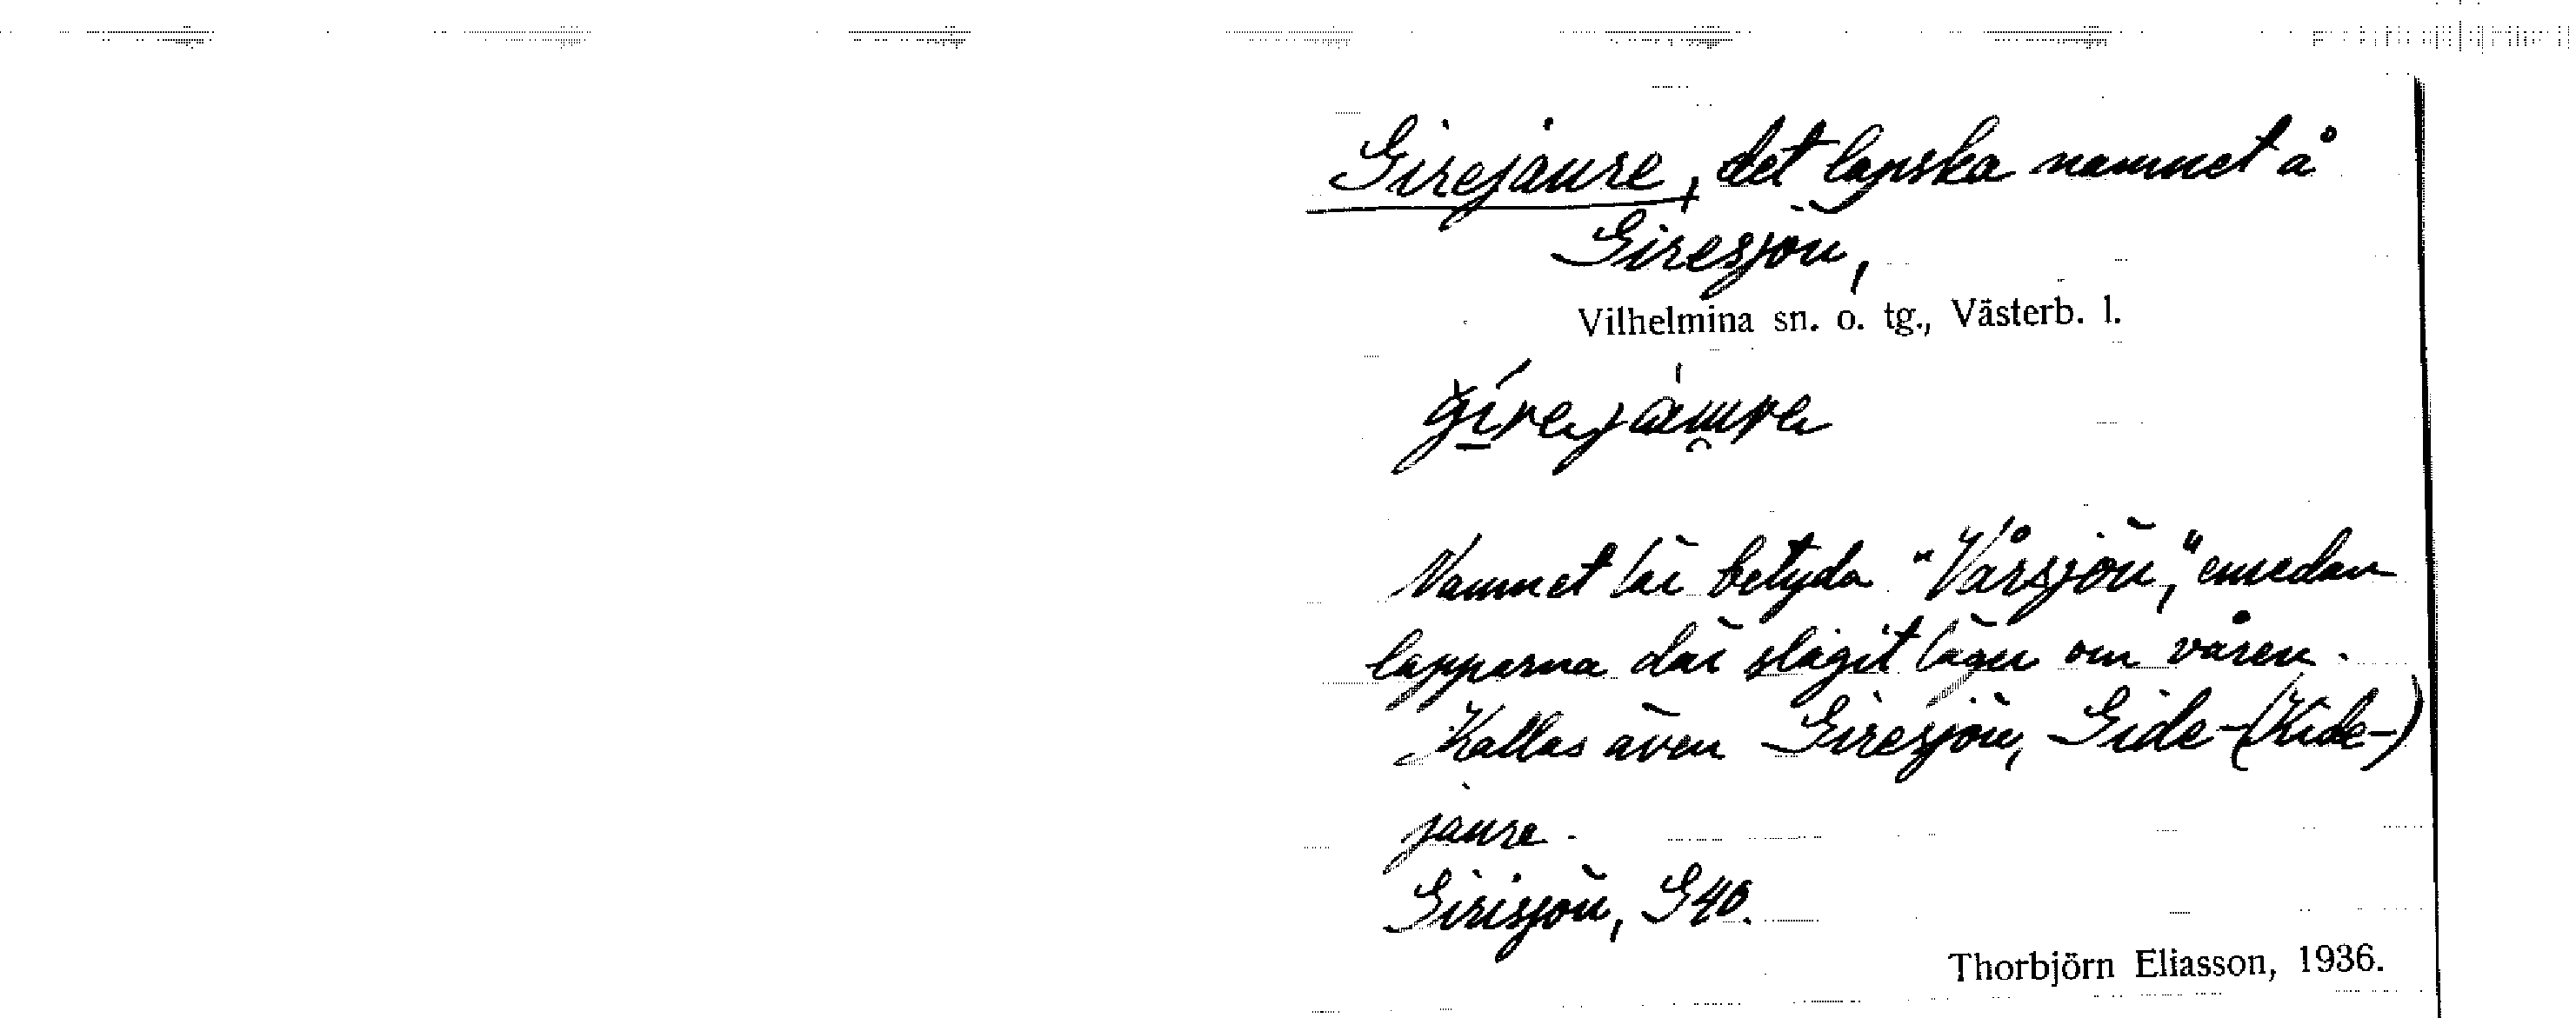 Girejaure, det lapska namnet å
Giresjön,
Vilhelmina sn. o. tg., Västerb. l.
Namnet lär betyda "Vårsjön," emedan
lapparna där slagit läger om våren.
Kallas även Giresjön, Gide-(Kide-)
jaure.
Girisjön, G40.
Thorbjörn Eliasson, 1936.